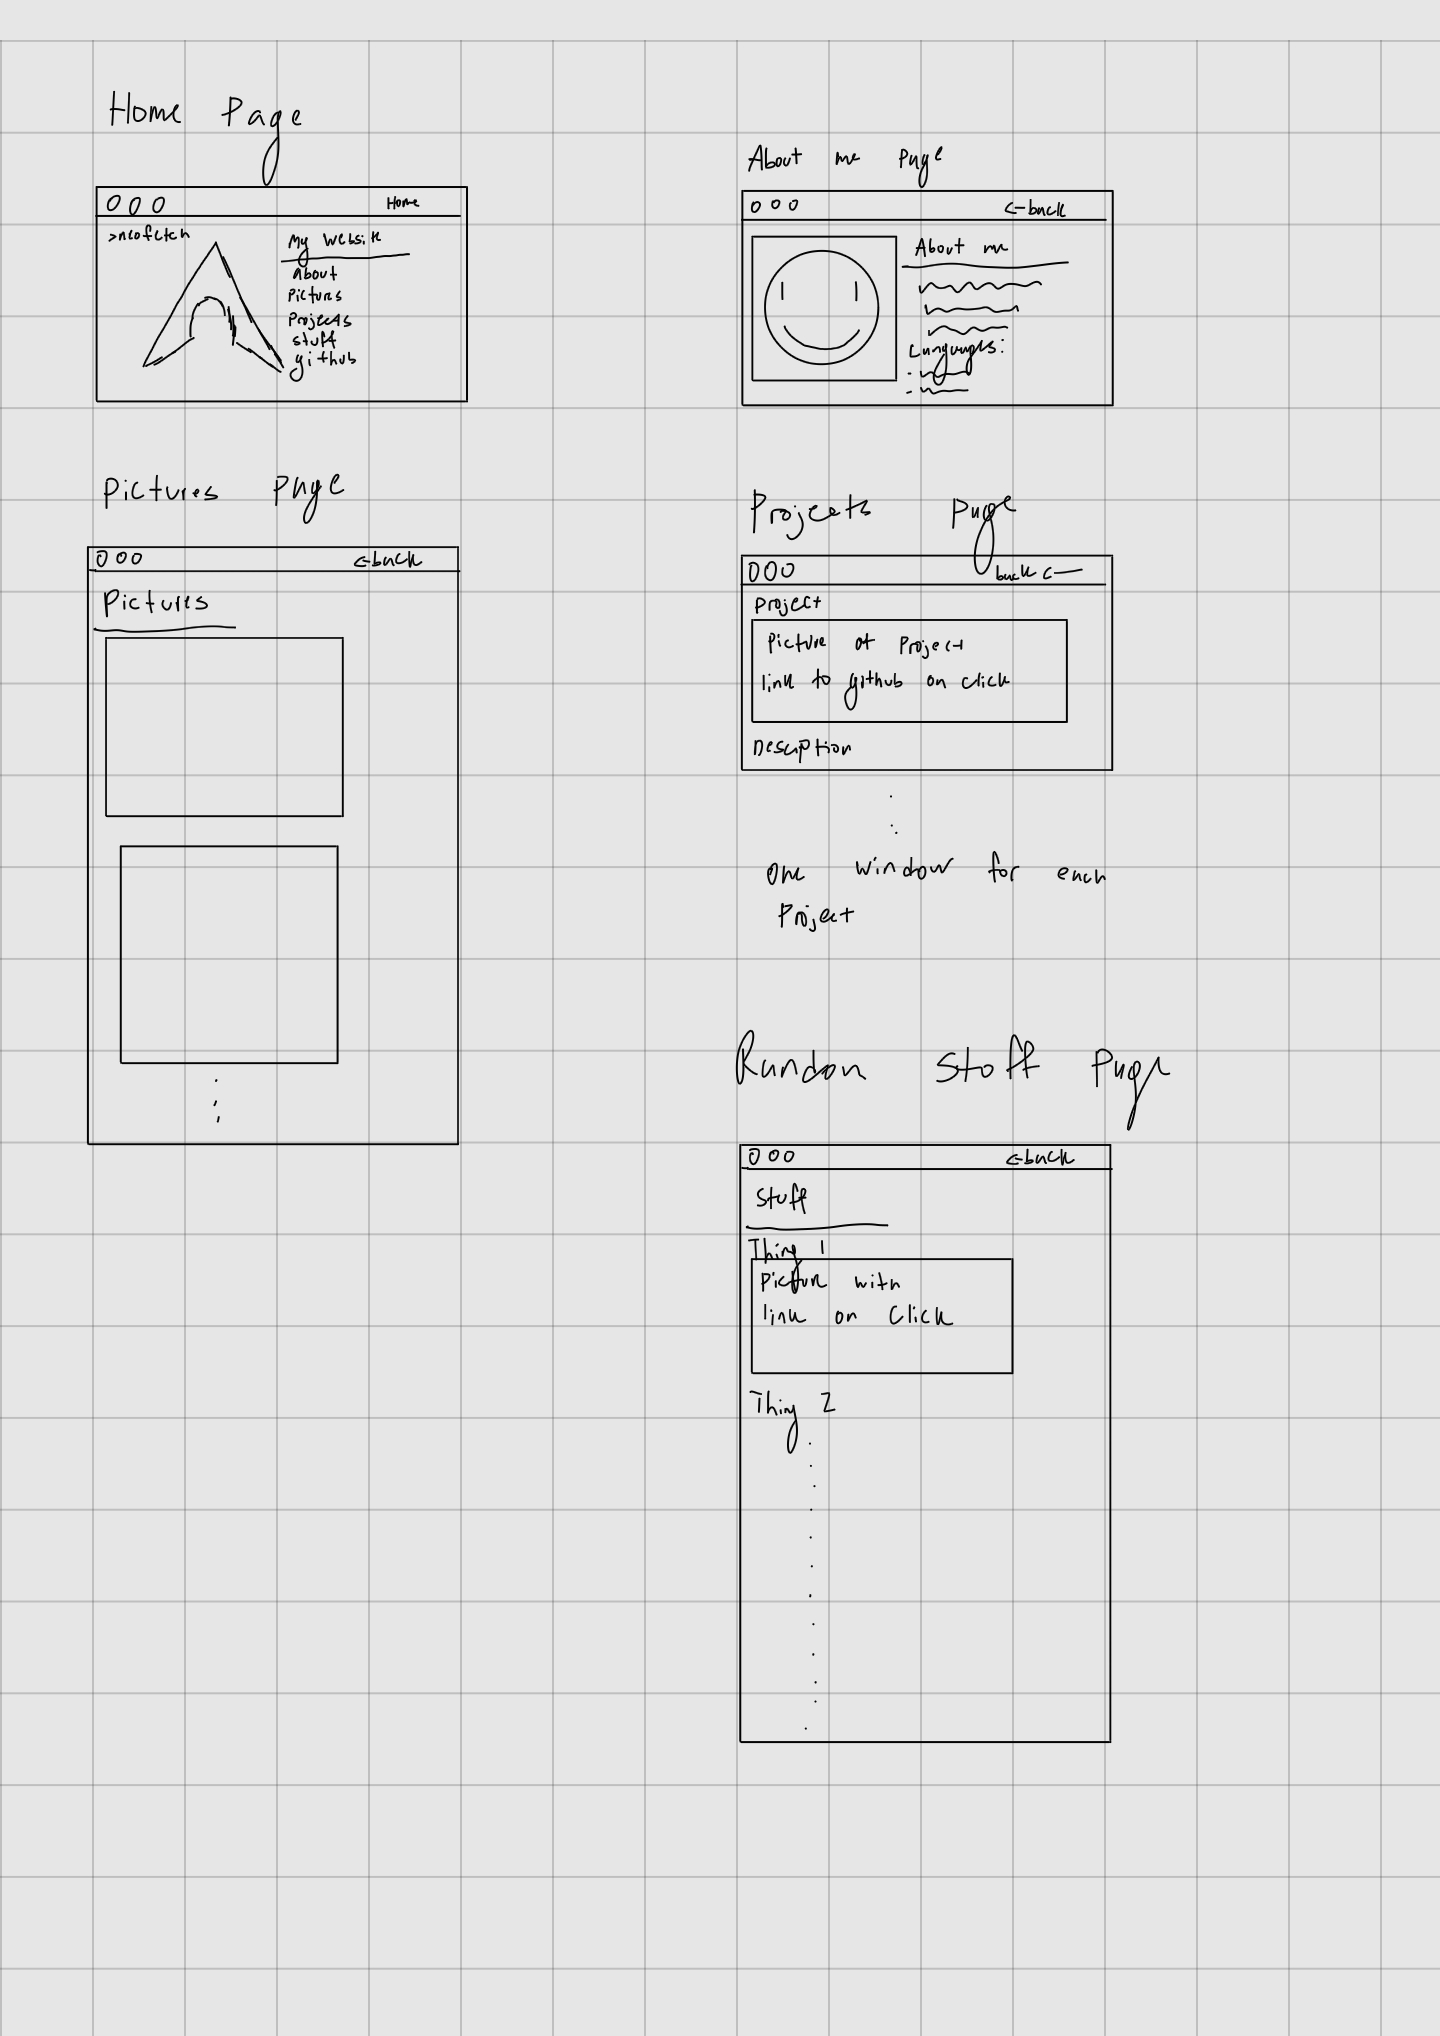 Home Page
Home
>neofetch
My website
about
Pictures
Projects
stuff
github
About me page
<-back
About me
Languages:
Pictures page
<-back
Pictures
Projects page
back <-
Project
Picture of Project
link to github on click
Description
one window for each
Project
Random Stuff Page
<-back
Stuff
Thing 1
Picture with
link on Click
Thing 2